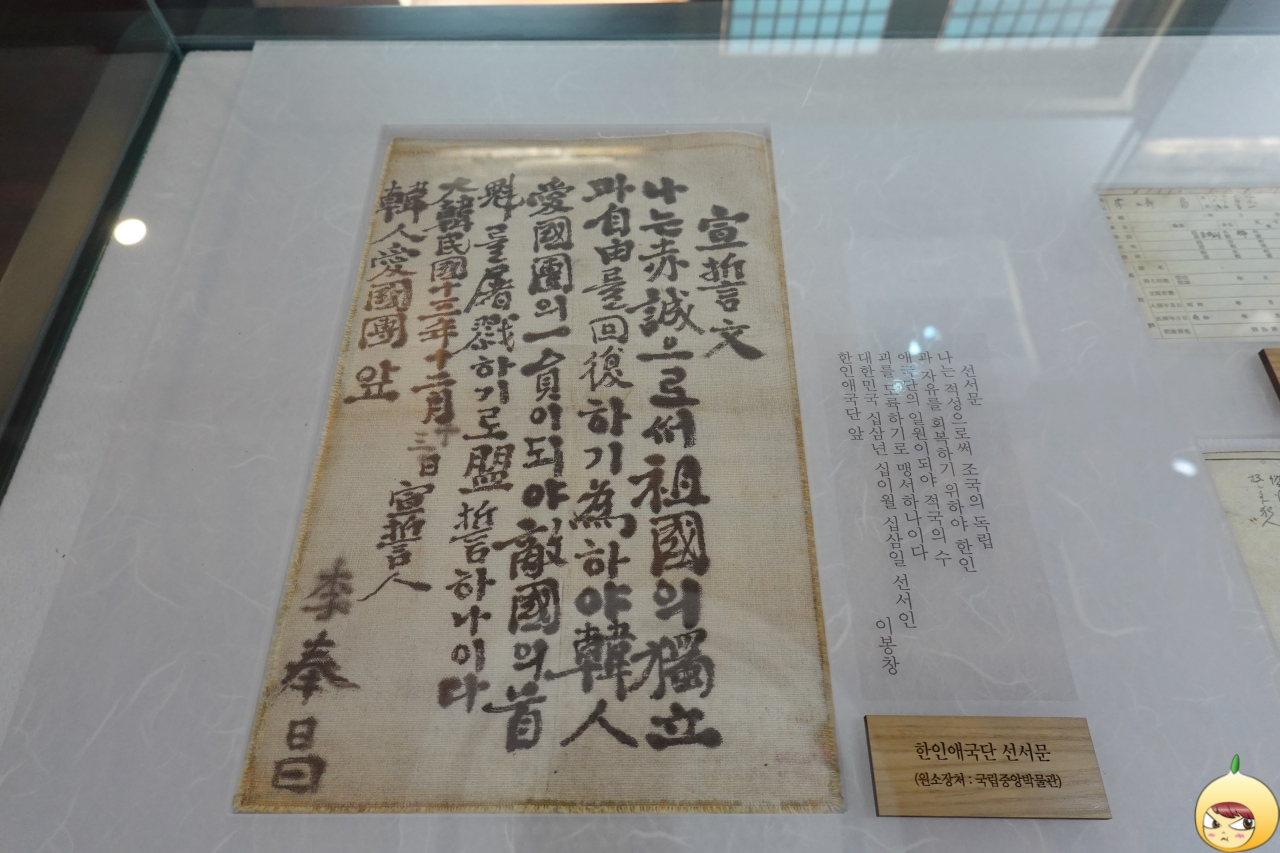 宣誓文
나는赤誠으로써祖國의獨立
과自由를回復하기爲하야韓人
愛國團의一員이되야敵國의首
魁를屠戮하기로盟誓하나이다
大韓民國十三年十二月十三日宣誓人
李奉昌
韓人愛國團앞
선서문
나는 적성으로써 조국의 독립
과 자유를 회복하기 위하야 한인
애국단의 일원이 되야 적국의 수
괴를 도륙하기로 맹서하나이다
대한민국 십삼년 십이월 십삼일 선서인
이봉창
한인애국단 앞
한인애국단 선서문
(원소장처 : 국립중앙박물관)